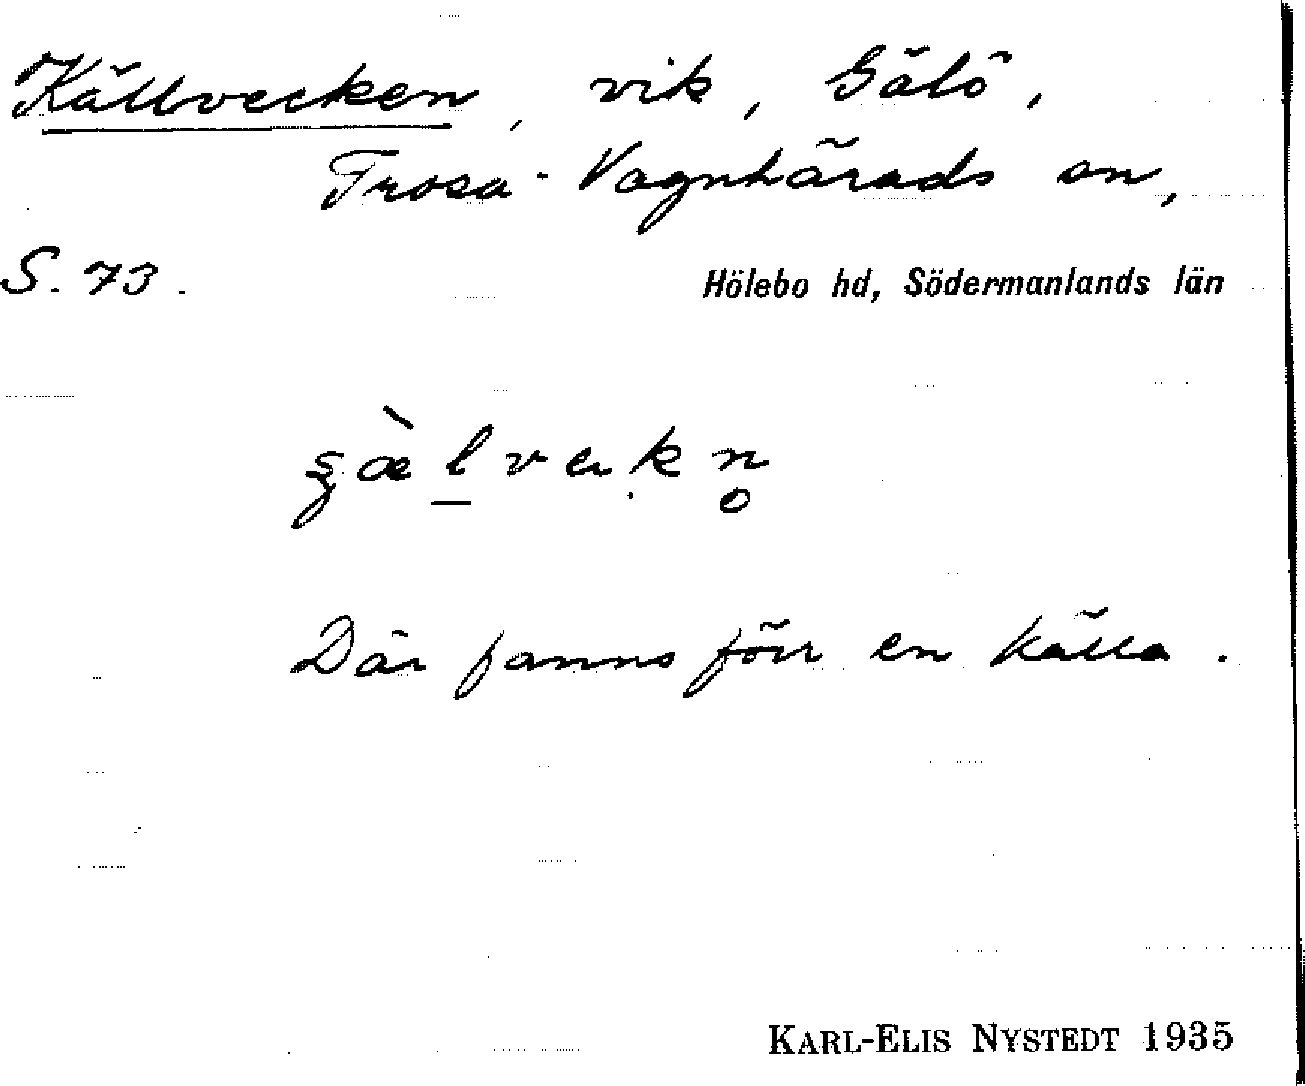 Källvecken, vik, Sälö,
Trosa-Vagnhärads sn,
S. 73.
Hölebo hd, Södermanlands län
Där fanns förr en källa.
KARL-ELIS NYSTEDT 1935